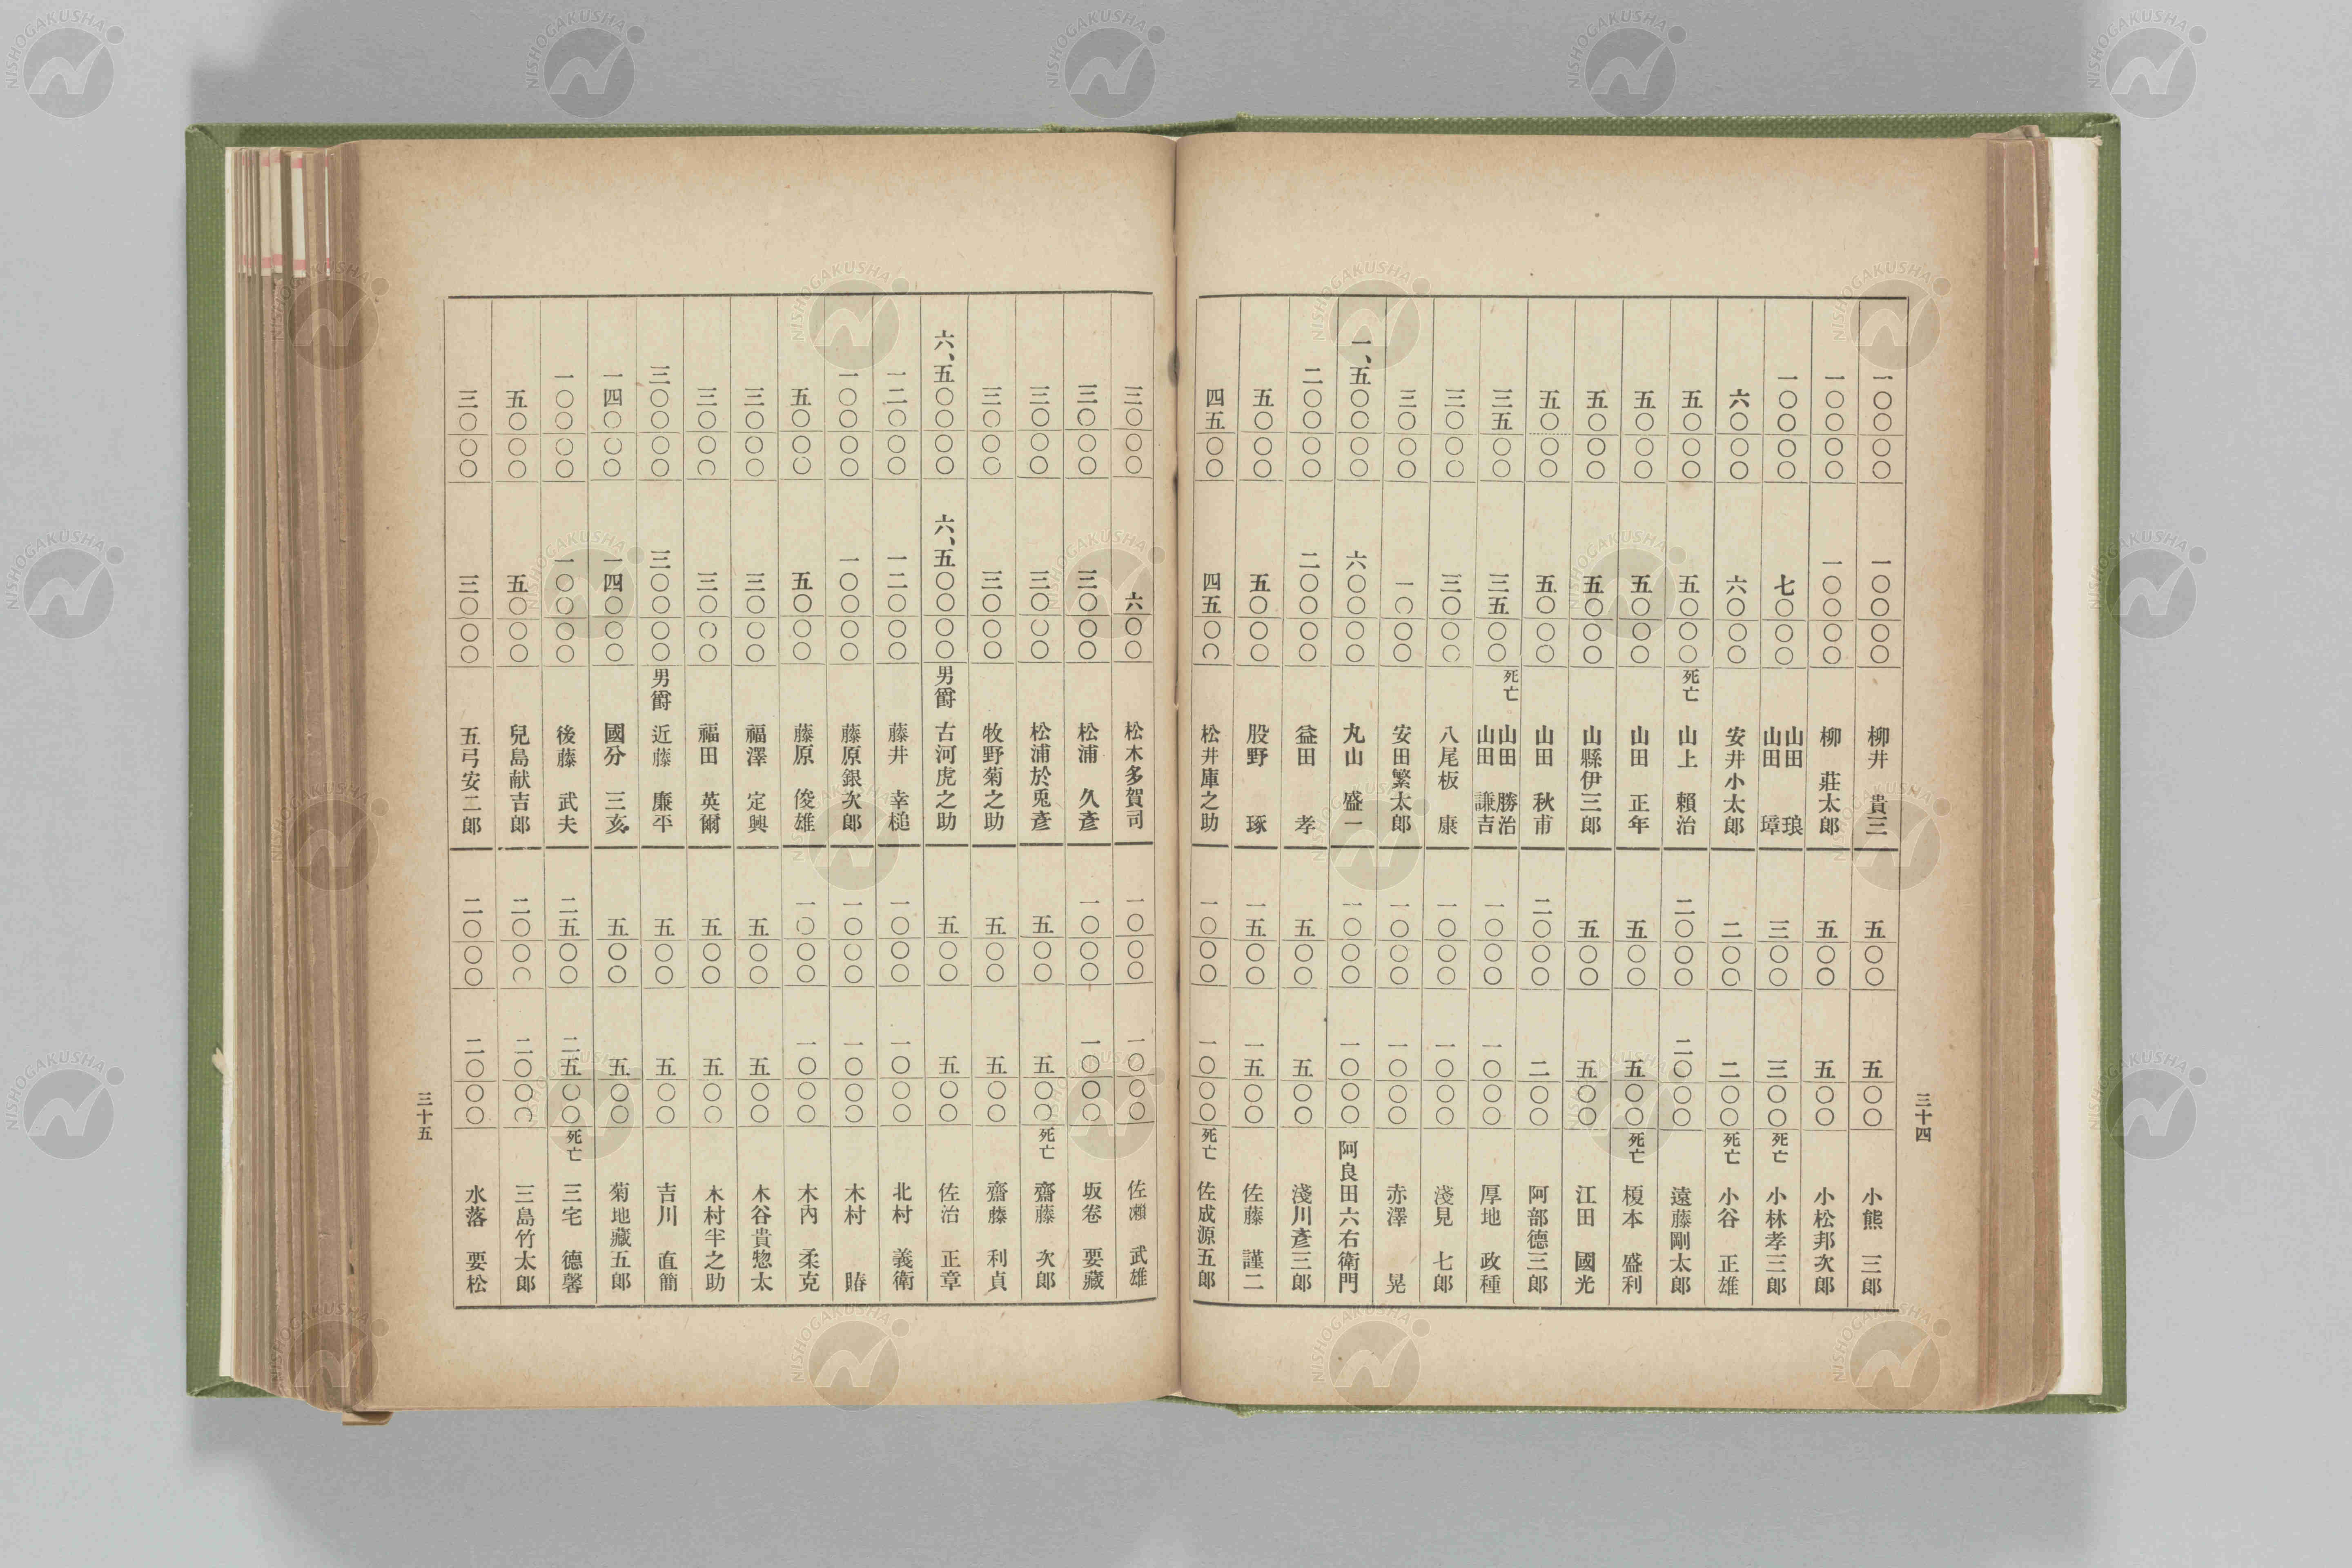 三十四
一〇〇〇〇 一〇〇〇〇 柳井 貴三
一〇〇〇〇 一〇〇〇〇 柳 莊太郎
一〇〇〇〇 七〇〇〇 山田 琅 山田 璋
六〇〇〇 六〇〇〇 安井小太郎
五〇〇〇 五〇〇〇 死亡 山上 賴治
五〇〇〇 五〇〇〇 山田 正年
五〇〇〇 五〇〇〇 山縣伊三郎
五〇〇〇 五〇〇〇 山田 秋甫
三五〇〇 三五〇〇 死亡 山田 勝治 山田 謙吉
三〇〇〇 三〇〇〇 八尾板 康
三〇〇〇 一〇〇〇 安田繁太郎
一、五〇〇〇〇 六〇〇〇〇 丸山 盛一
二〇〇〇〇 二〇〇〇〇 益田 孝
五〇〇〇 五〇〇〇 股野 琢
四五〇〇 四五〇〇 松井庫之助
五〇〇 五〇〇 小熊 三郎
五〇〇 五〇〇 小松邦次郎
三〇〇 三〇〇 死亡 小林孝三郎
二〇〇 二〇〇 死亡 小谷 正雄
二〇〇〇 二〇〇〇 遠藤剛太郎
五〇〇 五〇〇 死亡 榎本 盛利
五〇〇 五〇〇 江田 國光
二〇〇〇 二〇〇 阿部德三郎
一〇〇〇 一〇〇〇 厚地 政種
一〇〇〇 一〇〇〇 淺見 七郎
一〇〇〇 一〇〇〇 赤澤 晃
一〇〇〇 一〇〇〇 阿良田六右衛門
五〇〇 五〇〇 淺川彥三郎
一五〇〇 一五〇〇 佐藤 謹二
一〇〇〇 一〇〇〇 死亡 佐成源五郎
三〇〇〇 六〇〇 松木多賀司
三〇〇〇 三〇〇〇 松浦 久彥
三〇〇〇 三〇〇〇 松浦於兎彥
三〇〇〇 三〇〇〇 牧野菊之助
六、五〇〇〇〇 六、五〇〇〇〇 男爵 古河虎之助
一二〇〇〇 一二〇〇〇 藤井 幸槌
一〇〇〇〇 一〇〇〇〇 藤原銀次郎
五〇〇〇 五〇〇〇 藤原 俊雄
三〇〇〇 三〇〇〇 福澤 定興
三〇〇〇 三〇〇〇 福田 英爾
三〇〇〇〇 三〇〇〇〇 男爵 近藤 廉平
一四〇〇〇 一四〇〇〇 國分 三亥
一〇〇〇〇 一〇〇〇〇 後藤 武夫
五〇〇〇 五〇〇〇 兒島献吉郎
三〇〇〇 三〇〇〇 五弓安二郎
一〇〇〇 一〇〇〇 佐瀨 武雄
一〇〇〇 一〇〇〇 坂卷 要藏
五〇〇 五〇〇 死亡 齋藤 次郎
五〇〇 五〇〇 齋藤 利貞
五〇〇 五〇〇 佐治 正章
一〇〇〇 一〇〇〇 北村 義衛
一〇〇〇 一〇〇〇 木村 賰
一〇〇〇 一〇〇〇 木內 柔克
五〇〇 五〇〇 木谷貴惣太
五〇〇 五〇〇 木村半之助
五〇〇 五〇〇 吉川 直簡
五〇〇 五〇〇 菊地藏五郎
二五〇〇 二五〇〇 死亡 三宅 德馨
二〇〇〇 二〇〇〇 三島竹太郎
二〇〇〇 二〇〇〇 水落 要松
三十五
NISHOGAKUSHA